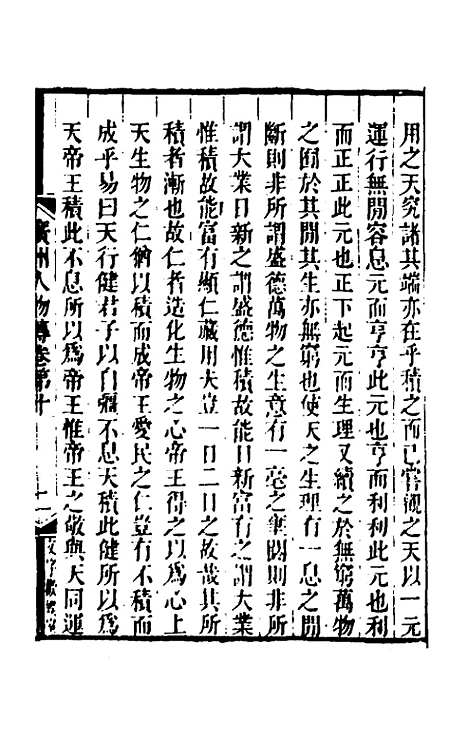 用之天究諸其端亦在乎積之而已嘗觀之天以一元
運行無閒容息元而亨亨此元也亨而利利此元也利
而正正此元也正下起元而生理又續之於無窮萬物
之囿於其閒其生亦無窮也使天之生理有一息之閒
斷則非所謂盛德萬物之生意有一毫之閒則非所
謂大業日新之謂盛德惟積故能日新富有之謂大業
惟積故能富有顯仁藏用夫豈一日二日之故哉其所
積者漸也故仁者造化生物之心帝王得之以爲心上
天生物之仁猶以積而成帝王愛民之仁豈有不積而
成乎易曰天行健君子以自彊不息天積此健所以爲
天帝王積此不息所以爲帝王惟帝王之敬與天同運
廣州人物傳卷第十